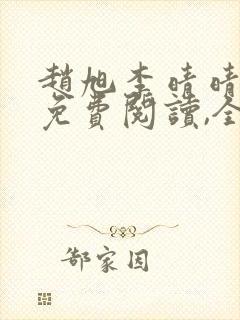 趙旭李晴晴
免費閱讀,全
郜家因